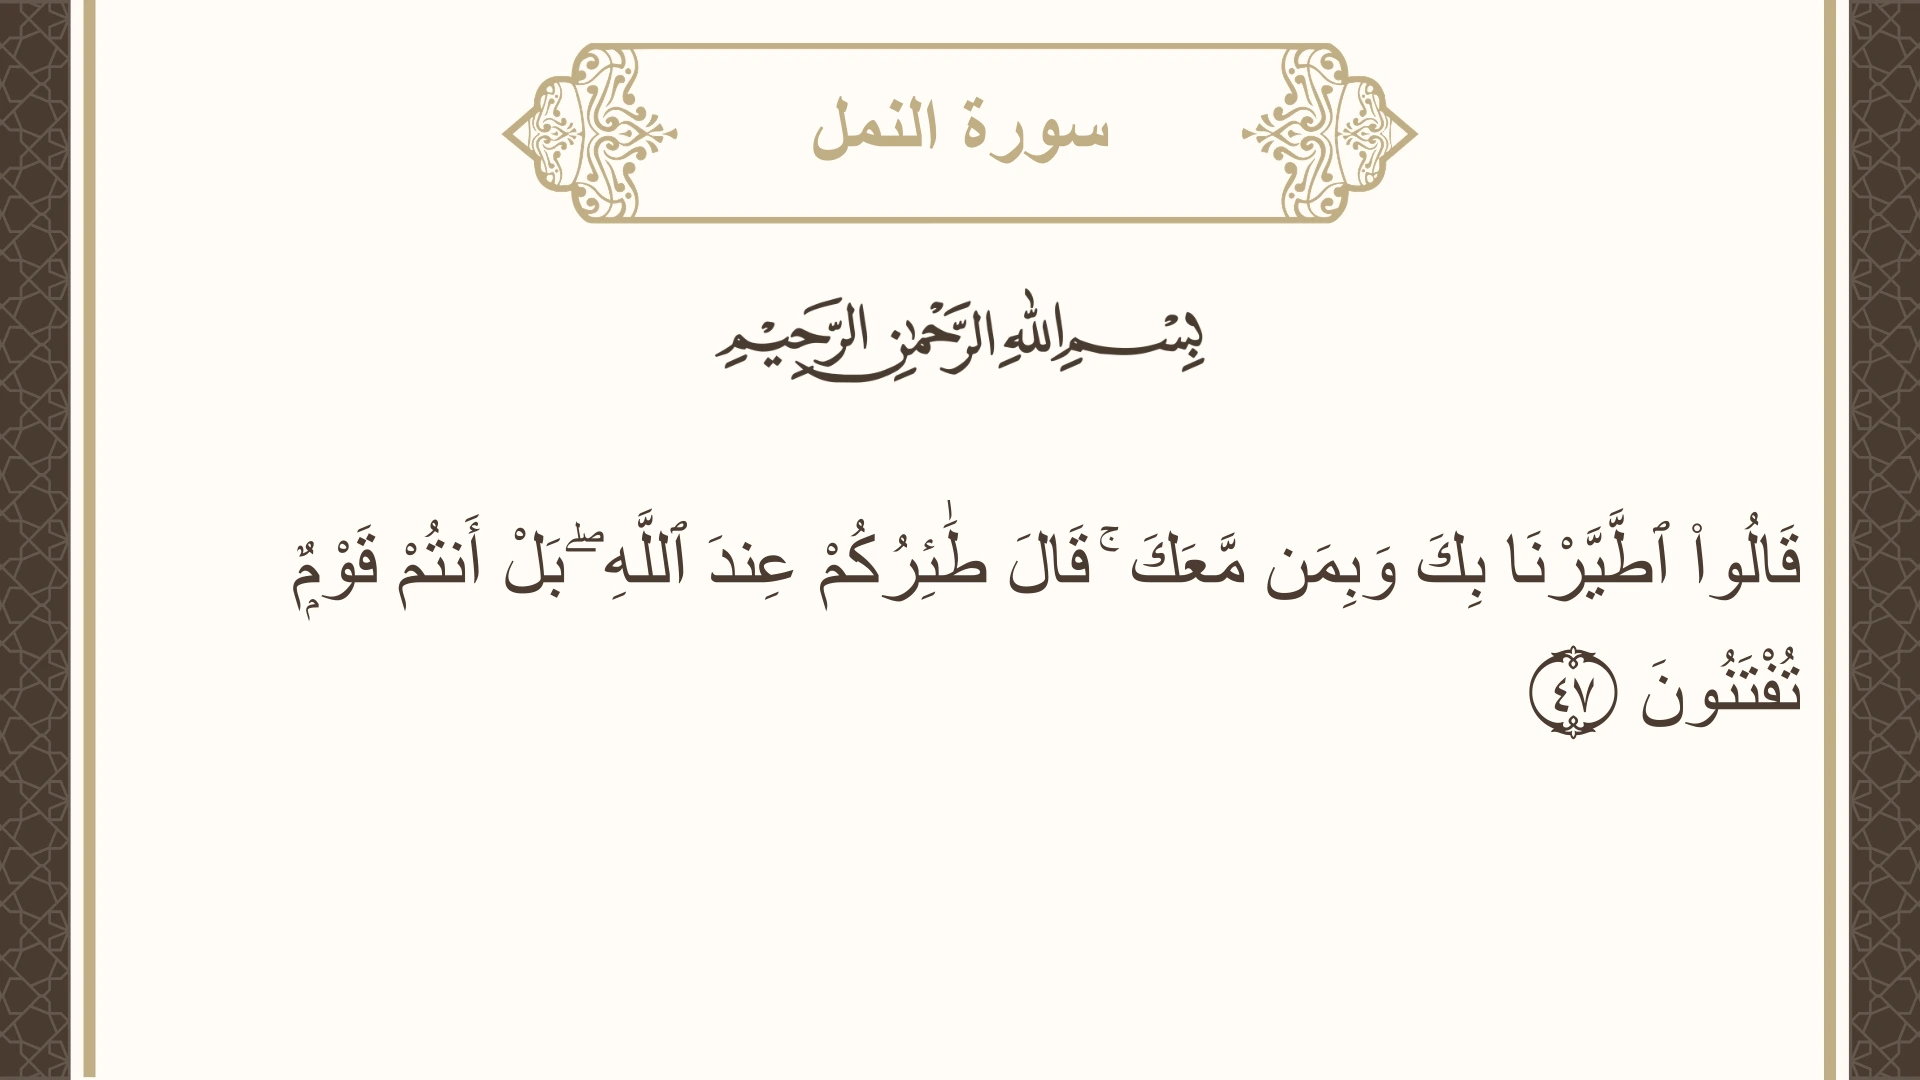 سورة النمل
بِسْمِ اللهِ الرَّحْمٰنِ الرَّحِيْمِ
قَالُوا۟ ٱطَّيَّرْنَا بِكَ وَبِمَن مَّعَكَ ۚ قَالَ طَـٰٓئِرُكُمْ عِندَ ٱللَّهِ ۖ بَلْ أَنتُمْ قَوْمٌۭ
تُفْتَنُونَ ٤٧